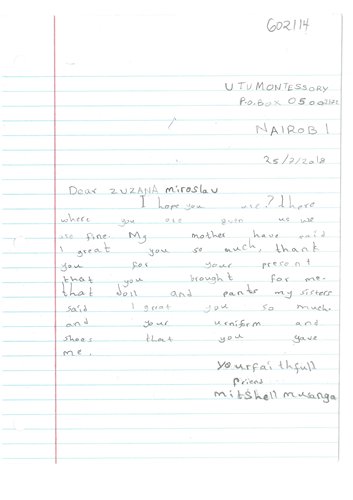 602114
UTU MONTESSORY
P.O.BOX 0500
NAIROBI
25/2/2018
Dear ZUZANA miroslav
I hope you are? I hope
where you are even us we
are fine. My mother have said
I great you so much, thank
you for your present
that you brought for me.
that doll and pants my sisters
said I great you so much.
and your urniform and
shoes that you gave
me.
yourfaithfull
friend
mitshell musanga